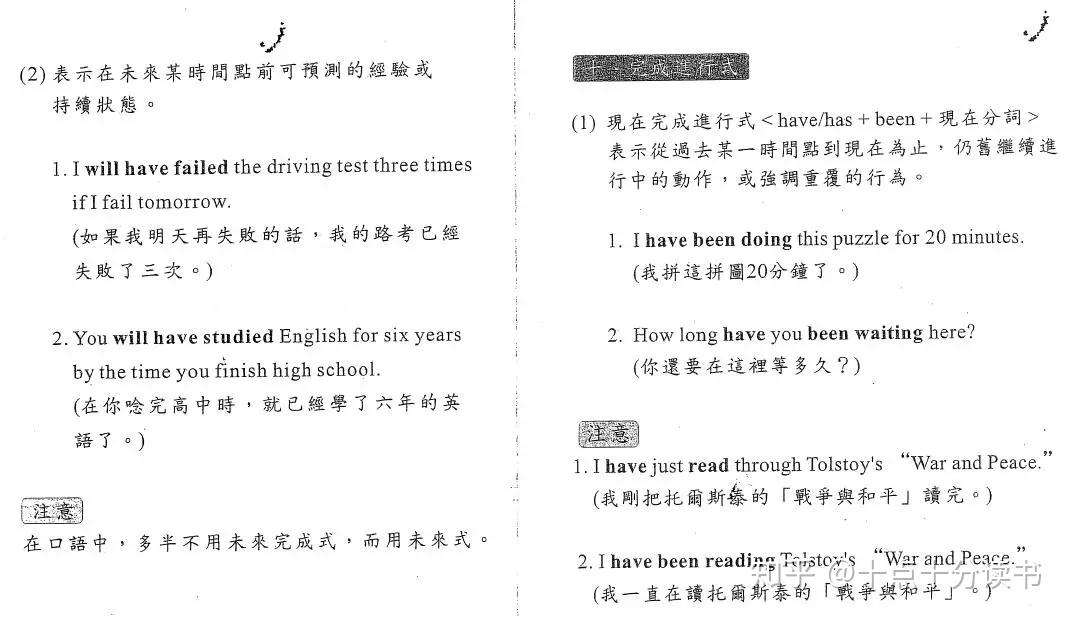 (2) 表示在未來某時間點前可預測的經驗或
持續狀態。
1. I will have failed the driving test three times
if I fail tomorrow.
(如果我明天再失敗的話，我的路考已經
失敗了三次。)
2. You will have studied English for six years
by the time you finish high school.
(在你唸完高中時，就已經學了六年的英
語了。)
注意
在口語中，多半不用未來完成式，而用未來式。
十、完成進行式
(1) 現在完成進行式 < have/has + been + 現在分詞 >
表示從過去某一時間點到現在為止，仍舊繼續進
行中的動作，或強調重覆的行為。
1. I have been doing this puzzle for 20 minutes.
(我拼這拼圖20分鐘了。)
2. How long have you been waiting here?
(你還要在這裡等多久？)
注意
1. I have just read through Tolstoy's “War and Peace.”
(我剛把托爾斯泰的「戰爭與和平」讀完。)
2. I have been reading Tolstoy's “War and Peace.”
(我一直在讀托爾斯泰的「戰爭與和平」。)
知乎 @十点十分读书